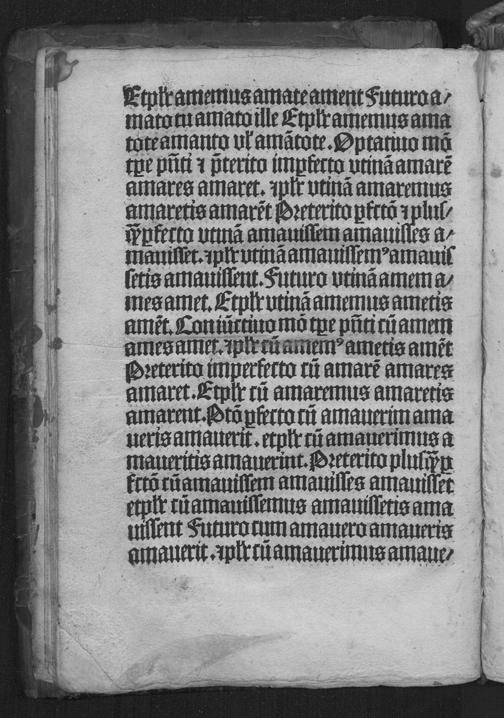 Etplr̄ amemus amate ament Futuro a/
mato tu amato ille Etplr̄ amemus ama
tote amanto vl̄ amātote. Optatiuo mō
tp̄e p̄nti ⁊ p̄terito imꝑfecto vtinā amarē
amares amaret. ⁊plr̄ vtinā amaremus
amaretis amarēt Preterito ꝑfctō ⁊ plus/
q̄ꝑfecto vtinā amauissem amauisses a/
mauisset. ⁊plr̄ vtinā amauissemꝰ amauis
setis amauissent. Futuro vtinā amem a/
mes amet. Etplr̄ vtinā amemus ametis
amēt. Coniūctiuo mō tp̄e p̄nti cū amem
ames amet. ⁊plr̄ cū amemꝰ ametis amēt
Preterito imperfecto cū amarē amares
amaret. Etplr̄ cū amaremus amaretis
amarent. Ptō ꝑfecto cū amauerim ama
ueris amauerit. etplr̄ cū amauerimus a
maueritis amauerint. Preterito plusq̄ꝑ
fctō cū amauissem amauisses amauisset
etplr̄ cū amauissemus amauissetis ama
uissent Futuro cum amauero amaueris
amauerit. ⁊plr̄ cū amauerimus amaue/